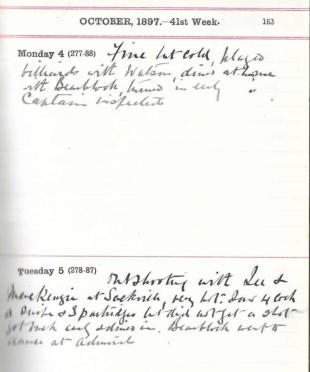 OCTOBER, 1897.—41st Week. 163
Monday 4 (277-88) Fine but cold, played
billiards with Watson, dined at home
with Bearblock, turned in early
Captain inspected
Tuesday 5 (278-87) Out shooting with Lee &
MacKenzie at Sackville, very hot. Saw 4 cock
a snipe & 3 partridges but did not get a shot
got back early & dined in. Bearblock went to
dance at Admiral